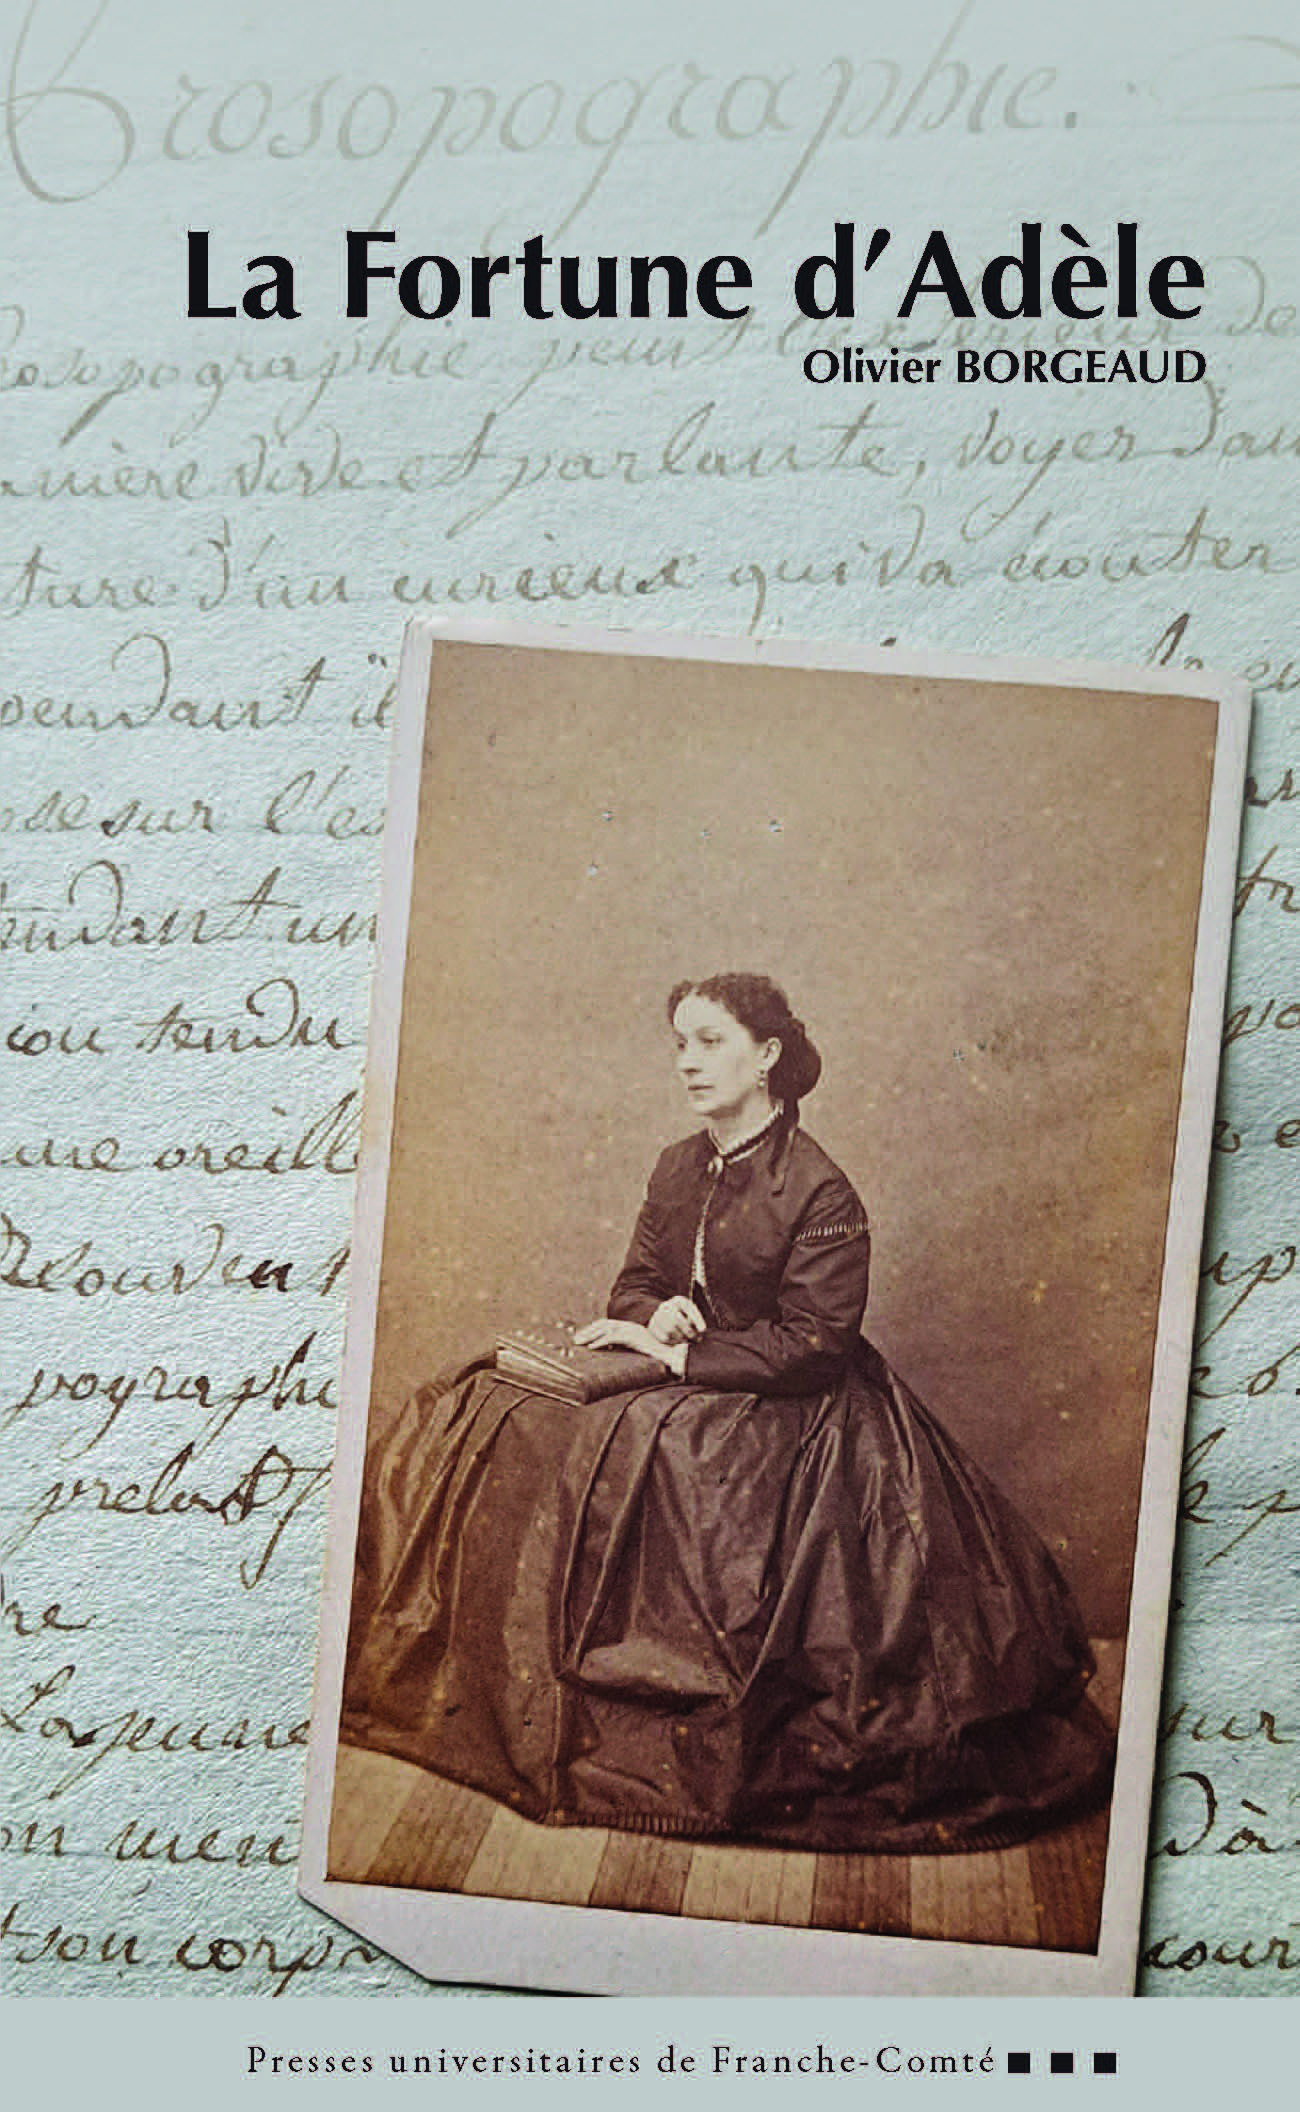 Prosopographie.
La Fortune d'Adèle
Olivier BORGEAUD
rosopographie peut l'exterieur de
mière vive et parlante, voyez dan
ture d'un curieux qui va écouter
pendant il
se sur l'es
tendant un
cou tendu
une oreille
pographie
re
La jeune sur
on men dà
t son corp cour
Presses universitaires de Franche-Comté